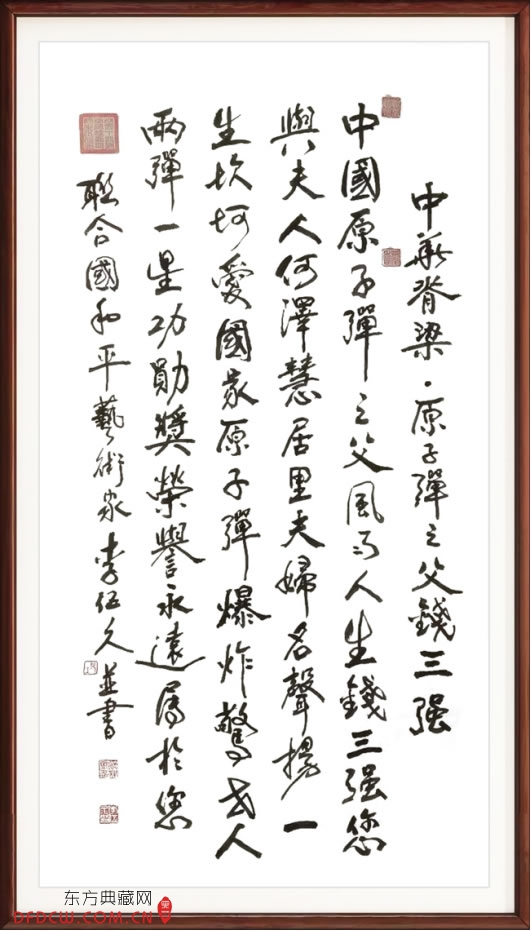 中華脊梁·原子彈之父錢三强
中國原子彈之父風雨人生錢三强您
與夫人何澤慧居里夫婦名聲揚一
生坎坷愛國家原子彈爆炸驚世人
兩彈一星功勛獎榮譽永遠屬於您
聯合國和平藝術家李伍久並書
东方典藏网
DFDCW.COM.CN